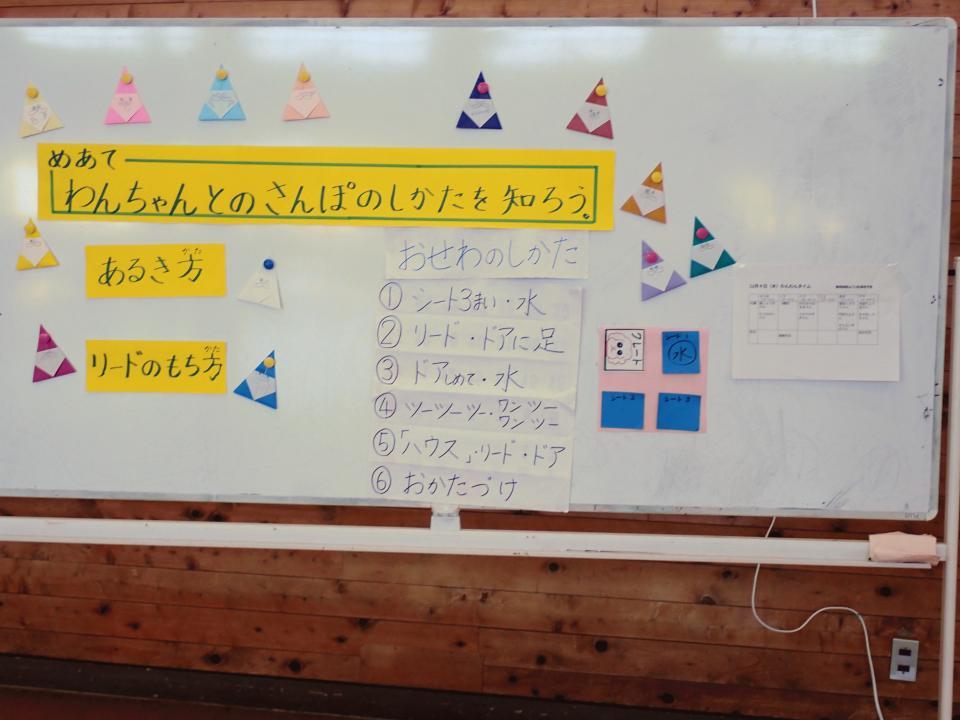 めあて
わんちゃんとのさんぽのしかたを知ろう。
あるき方
かた
リードのもち方
かた
おせわのしかた
① シート3まい・水
② リード・ドアに足
③ ドアしめて・水
④ ツーツーツー・ワンツー
ワンツー
⑤「ハウス」・リード・ドア
⑥ おかたづけ
プレート
シート1
水
シート2
シート3